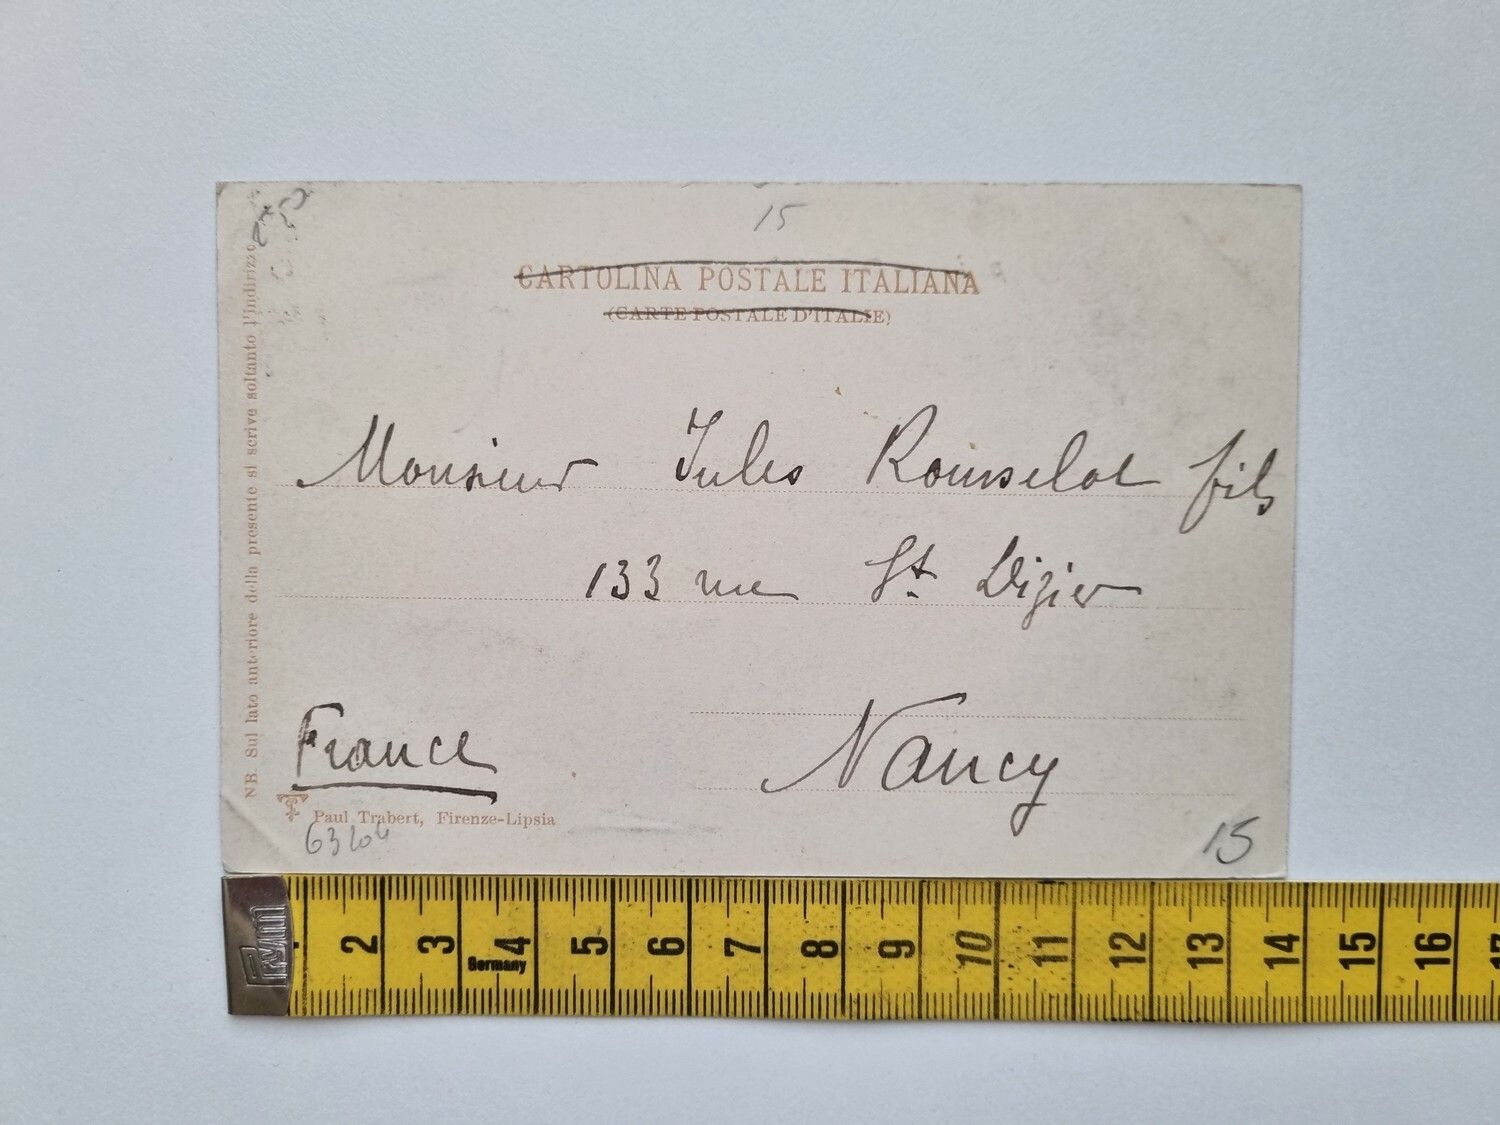 15
CARTOLINA POSTALE ITALIANA
(CARTE POSTALE D'ITALIE)
NB. Sul lato anteriore della presente si scrive soltanto l'indirizzo.
Monsieur Jules Rousselot fils
133 rue St. Dizier
Nancy
France
Paul Trabert, Firenze-Lipsia
63204
15
Prym
Germany
2 3 4 5 6 7 8 9 10 11 12 13 14 15 16 17